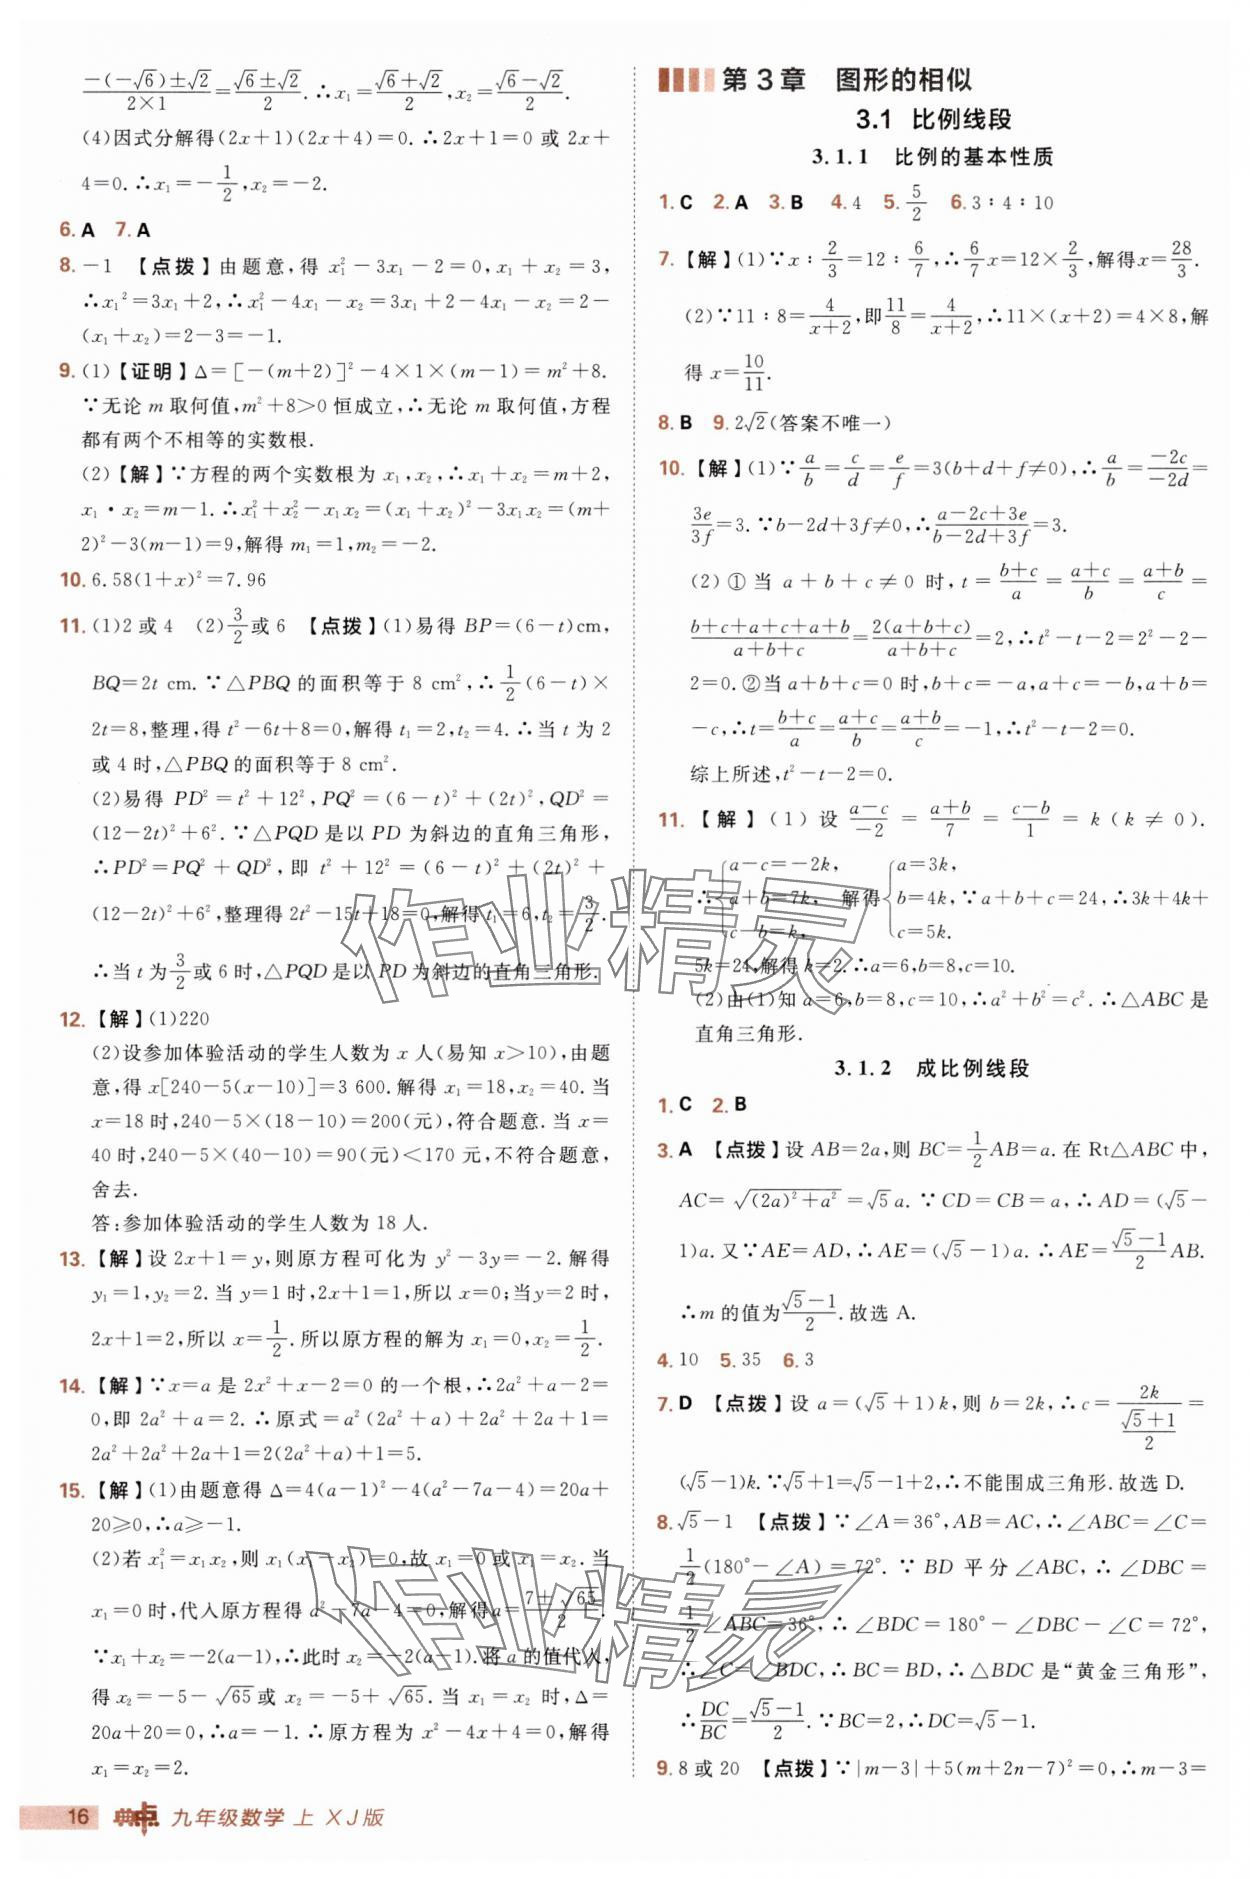 \frac{-(-√6)±√2}{2×1}=\frac{√6±√2}{2}.∴x₁=\frac{√6+√2}{2},x₂=\frac{√6-√2}{2}.
(4)因式分解得(2x+1)(2x+4)=0.∴2x+1=0或2x+
4=0.∴x₁=-\frac{1}{2},x₂=-2.
6. A 7. A
8. -1 【点拨】由题意,得 x₁²-3x₁-2=0,x₁+x₂=3,
∴x₁²=3x₁+2,∴x₁²-4x₁-x₂=3x₁+2-4x₁-x₂=2-
(x₁+x₂)=2-3=-1.
9. (1)【证明】Δ=[-(m+2)]²-4×1×(m-1)=m²+8.
∵无论 m 取何值,m²+8>0 恒成立,∴无论 m 取何值,方程
都有两个不相等的实数根.
(2)【解】∵方程的两个实数根为 x₁,x₂,∴x₁+x₂=m+2,
x₁·x₂=m-1.∴x₁²+x₂²-x₁x₂=(x₁+x₂)²-3x₁x₂=(m+
2)²-3(m-1)=9,解得 m₁=1,m₂=-2.
10. 6.58(1+x)²=7.96
11. (1)2或4 (2)\frac{3}{2}或6 【点拨】(1)易得 BP=(6-t)cm,
BQ=2t cm.∵△PBQ 的面积等于 8 cm²,∴\frac{1}{2}(6-t)×
2t=8,整理,得 t²-6t+8=0,解得 t₁=2,t₂=4.∴当 t 为 2
或 4 时,△PBQ 的面积等于 8 cm².
(2)易得 PD²=t²+12²,PQ²=(6-t)²+(2t)²,QD²=
(12-2t)²+6².∵△PQD 是以 PD 为斜边的直角三角形,
∴PD²=PQ²+QD²,即 t²+12²=(6-t)²+(2t)²+
(12-2t)²+6²,整理得 2t²-15t+18=0,解得 t₁=6,t₂=\frac{3}{2}.
∴当 t 为\frac{3}{2}或 6 时,△PQD 是以 PD 为斜边的直角三角形.
12. 【解】(1)220
(2)设参加体验活动的学生人数为 x 人(易知 x>10),由题
意,得 x[240-5(x-10)]=3 600.解得 x₁=18,x₂=40.当
x=18 时,240-5×(18-10)=200(元),符合题意.当 x=
40 时,240-5×(40-10)=90(元)<170 元,不符合题意,
舍去.
答:参加体验活动的学生人数为 18 人.
13. 【解】设 2x+1=y,则原方程可化为 y²-3y=-2.解得
y₁=1,y₂=2.当 y=1 时,2x+1=1,所以 x=0;当 y=2 时,
2x+1=2,所以 x=\frac{1}{2}.所以原方程的解为 x₁=0,x₂=\frac{1}{2}.
14. 【解】∵x=a 是 2x²+x-2=0 的一个根,∴2a²+a-2=
0,即 2a²+a=2.∴原式=a²(2a²+a)+2a²+2a+1=
2a²+2a²+2a+1=2(2a²+a)+1=5.
15. 【解】(1)由题意得 Δ=4(a-1)²-4(a²-7a-4)=20a+
20≥0,∴a≥-1.
(2)若 x₁²=x₁x₂,则 x₁(x₁-x₂)=0,故 x₁=0 或 x₁=x₂.当
x₁=0 时,代入原方程得 a²-7a-4=0,解得a=\frac{7±√65}{2}.
∵x₁+x₂=-2(a-1),∴此时 x₂=-2(a-1).将 a 的值代入,
得 x₂=-5-√65或 x₂=-5+√65.当 x₁=x₂ 时,Δ=
20a+20=0,∴a=-1.∴原方程为 x²-4x+4=0,解得
x₁=x₂=2.
16 典点 九年级数学 上 XJ版
第3章 图形的相似
3.1 比例线段
3.1.1 比例的基本性质
1. C 2. A 3. B 4. 4 5. \frac{5}{2} 6. 3∶4∶10
7. 【解】(1)∵x∶\frac{2}{3}=12∶\frac{6}{7},∴\frac{6}{7}x=12×\frac{2}{3},解得x=\frac{28}{3}.
(2)∵11∶8=\frac{4}{x+2},即\frac{11}{8}=\frac{4}{x+2},∴11×(x+2)=4×8,解
得 x=\frac{10}{11}.
8. B 9. 2√2(答案不唯一)
10. 【解】(1)∵\frac{a}{b}=\frac{c}{d}=\frac{e}{f}=3(b+d+f≠0),∴\frac{a}{b}=\frac{-2c}{-2d}=
\frac{3e}{3f}=3.∵b-2d+3f≠0,∴\frac{a-2c+3e}{b-2d+3f}=3.
(2)①当 a+b+c≠0 时,t=\frac{b+c}{a}=\frac{a+c}{b}=\frac{a+b}{c}=
\frac{b+c+a+c+a+b}{a+b+c}=\frac{2(a+b+c)}{a+b+c}=2,∴t²-t-2=2²-2-
2=0.②当 a+b+c=0 时,b+c=-a,a+c=-b,a+b=
-c,∴t=\frac{b+c}{a}=\frac{a+c}{b}=\frac{a+b}{c}=-1,∴t²-t-2=0.
综上所述,t²-t-2=0.
11. 【解】(1)设\frac{a-c}{-2}=\frac{a+b}{7}=\frac{c-b}{1}=k(k≠0).
∴{a-c=-2k, a+b=7k, c-b=k, 解得{a=3k, b=4k, c=5k. ∵a+b+c=24,∴3k+4k+
5k=24,解得 k=2.∴a=6,b=8,c=10.
(2)由(1)知 a=6,b=8,c=10,∴a²+b²=c².∴△ABC 是
直角三角形.
3.1.2 成比例线段
1. C 2. B
3. A 【点拨】设 AB=2a,则 BC=\frac{1}{2}AB=a.在 Rt△ABC 中,
AC=√((2a)²+a²)=√5a.∵CD=CB=a,∴AD=(√5-
1)a.又∵AE=AD,∴AE=(√5-1)a.∴AE=\frac{√5-1}{2}AB.
∴m 的值为\frac{√5-1}{2}.故选 A.
4. 10 5. 35 6. 3
7. D 【点拨】设 a=(√5+1)k,则 b=2k,∴c=\frac{2k}{\frac{√5+1}{2}}=
(√5-1)k.∵√5+1=√5-1+2,∴不能围成三角形.故选 D.
8. √5-1 【点拨】∵∠A=36°,AB=AC,∴∠ABC=∠C=
\frac{1}{2}(180°-∠A)=72°.∵BD 平分∠ABC,∴∠DBC=
\frac{1}{2}∠ABC=36°,∴∠BDC=180°-∠DBC-∠C=72°,
∴∠C=∠BDC,∴BC=BD,∴△BDC 是“黄金三角形”,
∴\frac{DC}{BC}=\frac{√5-1}{2}.∵BC=2,∴DC=√5-1.
9. 8或20 【点拨】∵|m-3|+5(m+2n-7)²=0,∴m-3=
作业精灵
作业精灵